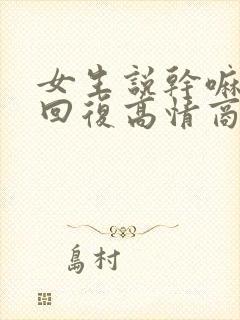 女生説幹嘛
回復高情商
島村